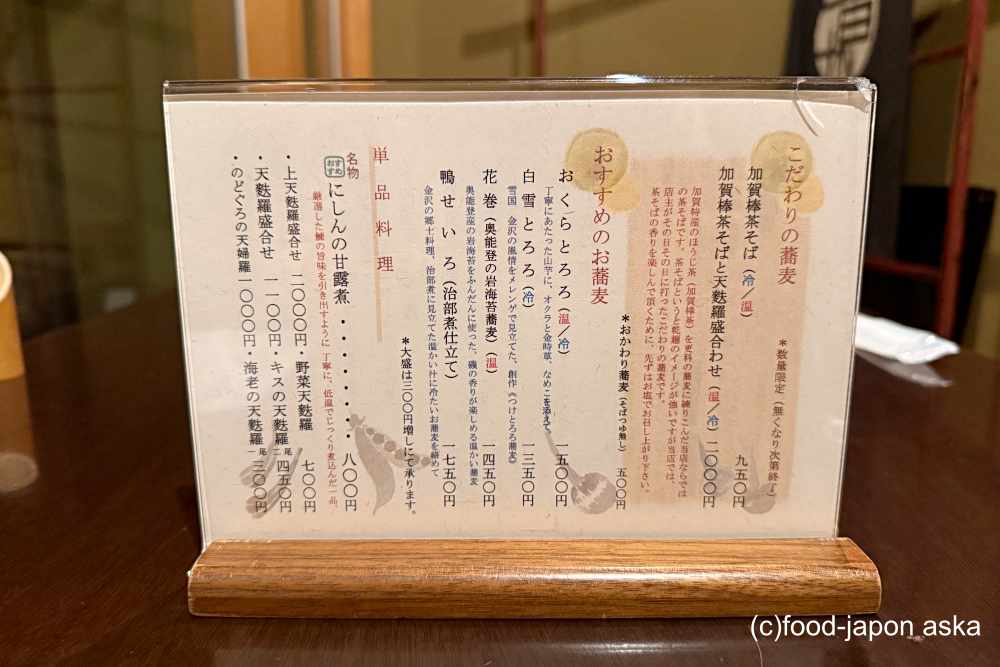 こだわりの蕎麦
*数量限定(無くなり次第終了)
加賀棒茶そば(冷/温) 九五〇円
加賀棒茶そばと天麩羅盛合わせ(温/冷) 二〇〇〇円
加賀特産のほうじ茶(加賀棒茶)を更科の蕎麦に練りこんだ当店ならでは
の茶そばです。茶そばというと乾麺のイメージが強いですが当店では、
店主がその日その日に打ったこだわりの蕎麦です。
茶そばの香りを楽しんで頂くために、先ずはお塩でお召し上がり下さい。
*おかわり蕎麦(そばつゆ無し) 五〇〇円
おすすめのお蕎麦
おくらとろろ(温/冷) 一五〇〇円
丁寧にあたった山芋に、オクラと金時草、なめこを添えて
白雪とろろ(冷) 一三五〇円
雪国 金沢の風情をメレンゲで見立てた、創作《つけとろろ蕎麦》
花巻(奥能登の岩海苔蕎麦)(温) 一四五〇円
奥能登産の岩海苔をふんだんに使った、磯の香りが楽しめる温かい蕎麦
鴨せいろ(治部煮仕立て) 一七五〇円
金沢の郷土料理、治部煮に見立てた温かい汁に冷たいお蕎麦を絡めて
*大盛は三〇〇円増しにて承ります。
単品料理
名物
おすすめ
にしんの甘露煮・・・・・・・八〇〇円
厳選した鰊の旨味を引き出すように 丁寧に、低温でじっくり煮込んだ一品。
・上天麩羅盛合せ 二〇〇〇円・野菜天麩羅 七〇〇円
・天麩羅盛合せ 一一〇〇円・キスの天麩羅二尾 四五〇円
・のどぐろの天婦羅 一〇〇〇円・海老の天麩羅一尾 三〇〇円
(c)food-japon aska